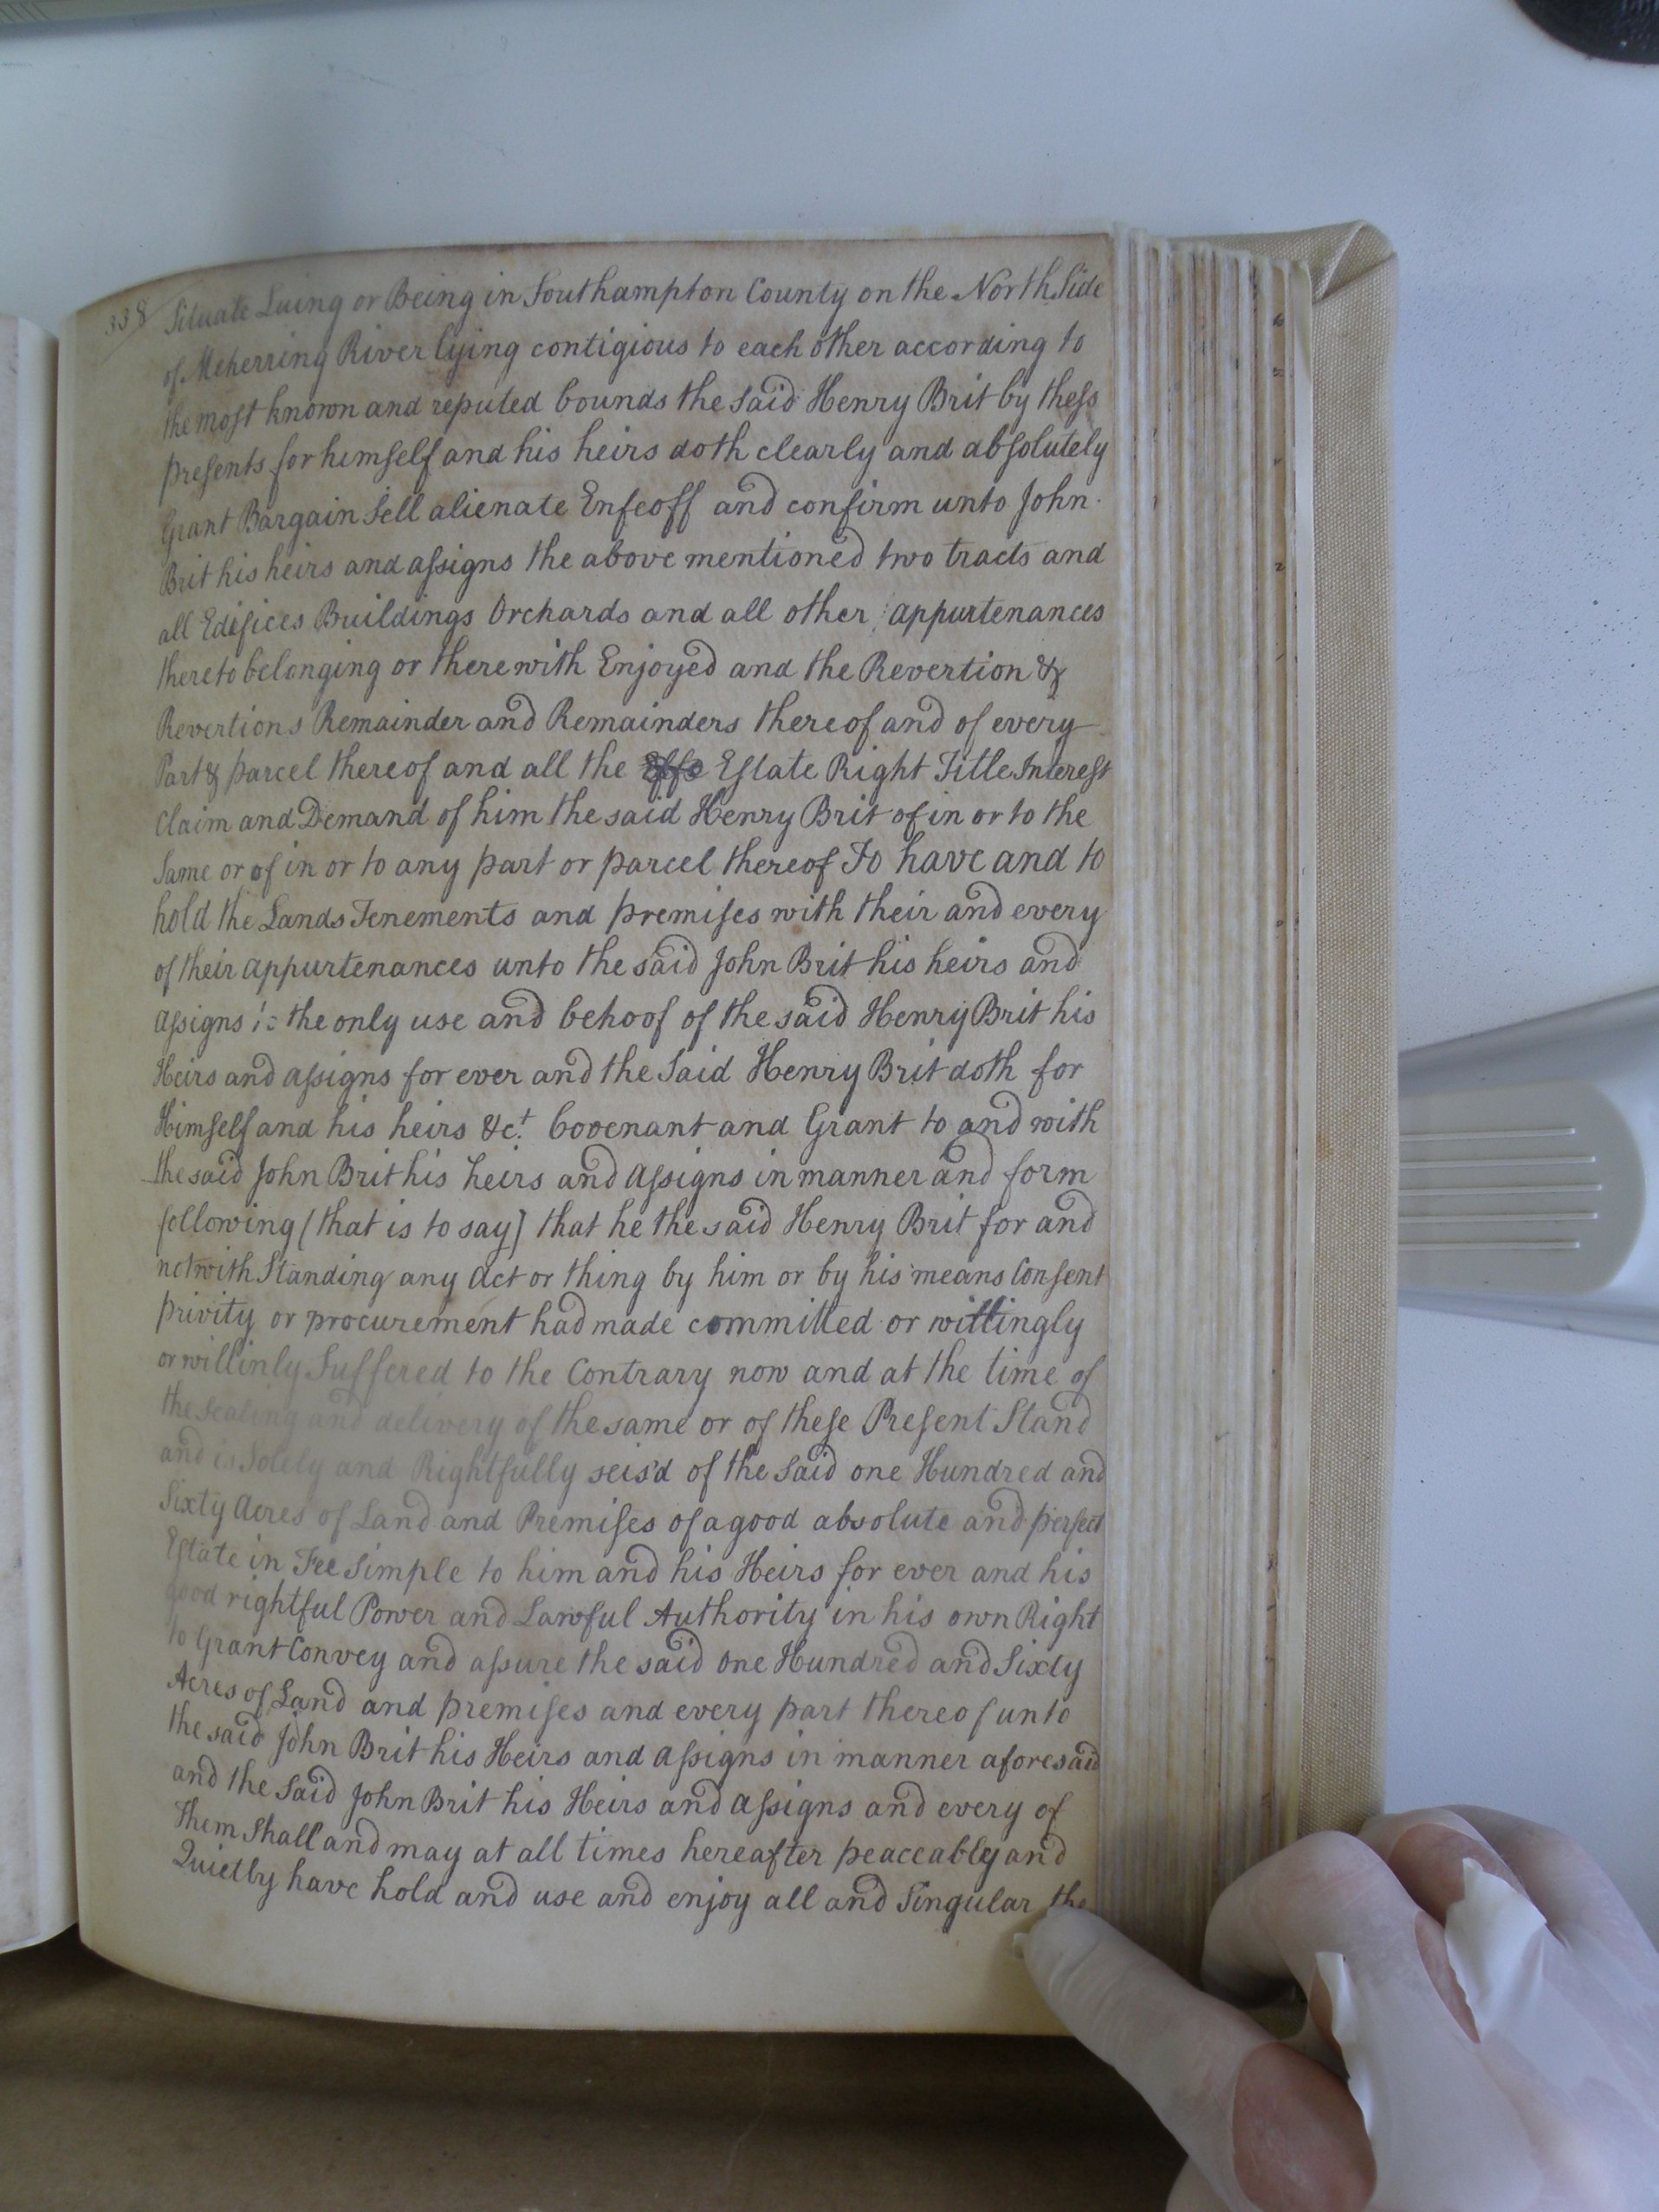 338 Situate Luing or Being in Southampton County on the North Side
of Meherring River lying contigious to each other according to
the most known and reputed bounds the said Henry Brit by thess
presents for himself and his heirs doth clearly and absolutely
Grant Bargain Sell alienate Enfeoff and confirm unto John
Brit his heirs and assigns the above mentioned two tracts and
all Edifices Buildings Orchards and all other appurtenances
thereto belonging or therewith Enjoyed and the Revertion &
Revertions Remainder and Remainders thereof and of every
Part & parcel thereof and all the Estate Right Title Interest
Claim and Demand of him the said Henry Brit of in or to the
Same or of in or to any part or parcel thereof To have and to
hold the Lands Tenements and premises with their and every
of their appurtenances unto the said John Brit his heirs and
assigns to the only use and behoof of the said Henry Brit his
Heirs and assigns for ever and the Said Henry Brit doth for
Himself and his heirs &ct. Covenant and Grant to and with
the said John Brit his heirs and assigns in manner and form
following (that is to say) that he the said Henry Brit for and
notwith Standing any act or thing by him or by his means Consent
privity or procurement had made committed or wittingly
or willinly Suffered to the Contrary now and at the time of
the sealing and delivery of the same or of these Present Stand
and is Solely and Rightfully seis'd of the Said one Hundred and
Sixty acres of Land and Premises of a good absolute and perfect
Estate in Fee Simple to him and his Heirs for ever and his
good rightful Power and Lawful Authority in his own Right
to Grant Convey and assure the said one Hundred and Sixty
Acres of Land and premises and every part thereof unto
the said John Brit his Heirs and assigns in manner aforesaid
and the said John Brit his Heirs and assigns and every of
Them Shall and may at all times hereafter peaceably and
Quietly have hold and use and enjoy all and Singular the